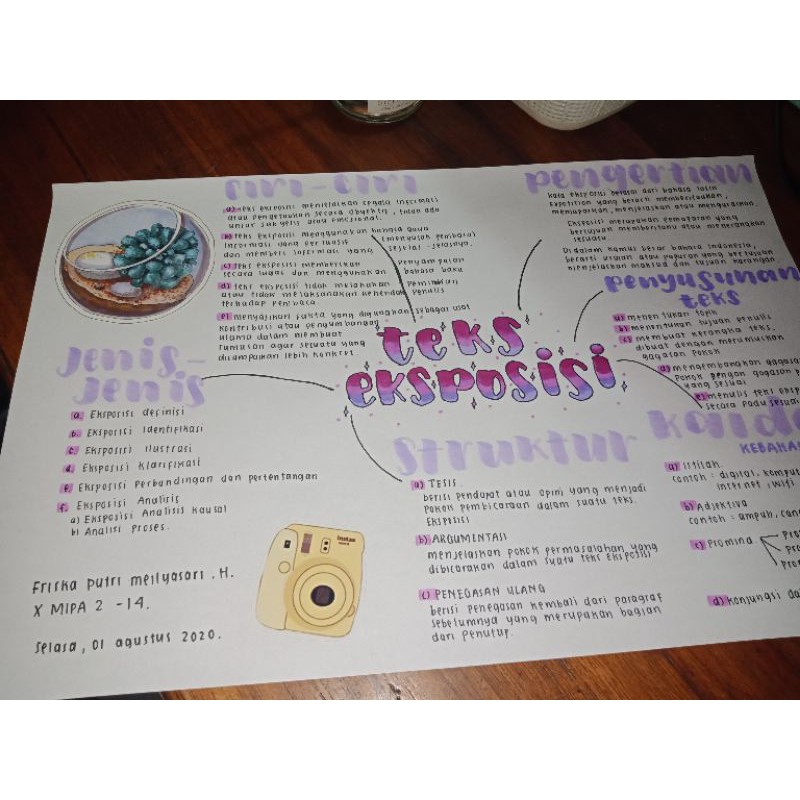 ciri-ciri
a) teks eksposisi menjelaskan segala informasi
atau pengetahuan secara obyektif, tidak ada
unsur subyektif atau emosional.
b) teks eksposisi menggunakan bahasa gaya
informasi yang persuasif (menyusuk pembaca)
dan memberi informasi yang sejelas-jelasnya.
c) teks eksposisi memberikan penyampaian
secara lugas dan menggunakan bahasa baku
d) teks eksposisi tidak memihak pemikiran
atau tidak melaksanakan kehendak penulis
terhadap pembaca.
e) menyajikan fakta yang digunakan sebagai alat
kontribusi atau penyumbangan
utama dalam membuat
rumusan agar sesuatu yang
disampaikan lebih konkret.
pengertian
kata eksposisi berasal dari bahasa latin
Expotition yang berarti memberitahukan,
memaparkan, menjelaskan atau menguraikan.
Eksposisi merupakan pemaparan yang
bertujuan memberitahu atau menerangkan
sesuatu.
Di dalam kamus besar bahasa Indonesia,
berarti uraian atau paparan yang bertujuan
menjelaskan maksud dan tujuan karangan.
penyusunan
teks
a) menentukan topik
b) menentukan tujuan penulis
c) membuat kerangka teks.
dibuat dengan merumuskan
gagasan pokok
d) mengembangkan gagasan
pokok dengan gagasan
yang sesuai
e) menulis teks
secara padu sesuai
teks
eksposisi
jenis-
jenis
a. Eksposisi definisi
b. Eksposisi Identifikasi
c. Eksposisi Ilustrasi
d. Eksposisi klarifikasi
e. Eksposisi Perbandingan dan pertentangan
f. Eksposisi Analisis
a) Eksposisi Analisis kausal
b) Analisi Proses.
struktur
a) TESIS.
berisi pendapat atau opini yang menjadi
pokok pembicaraan dalam suatu teks.
Eksposisi
b) ARGUMENTASI
menjelaskan pokok permasalahan yang
dibicarakan dalam suatu teks eksposisi
c) PENEGASAN ULANG
berisi penegasan kembali dari paragraf
sebelumnya yang merupakan bagian
dari penutup.
KEBAHA
a) Istilah.
contoh : digital, komput
internet, wifi
b) Adjektiva
contoh : ampuh,
c) Promina
pro
pro
pro
d) Konjungsi da
Friska putri meilyasari . H.
X MIPA 2 -14.
Selasa, 01 agustus 2020.